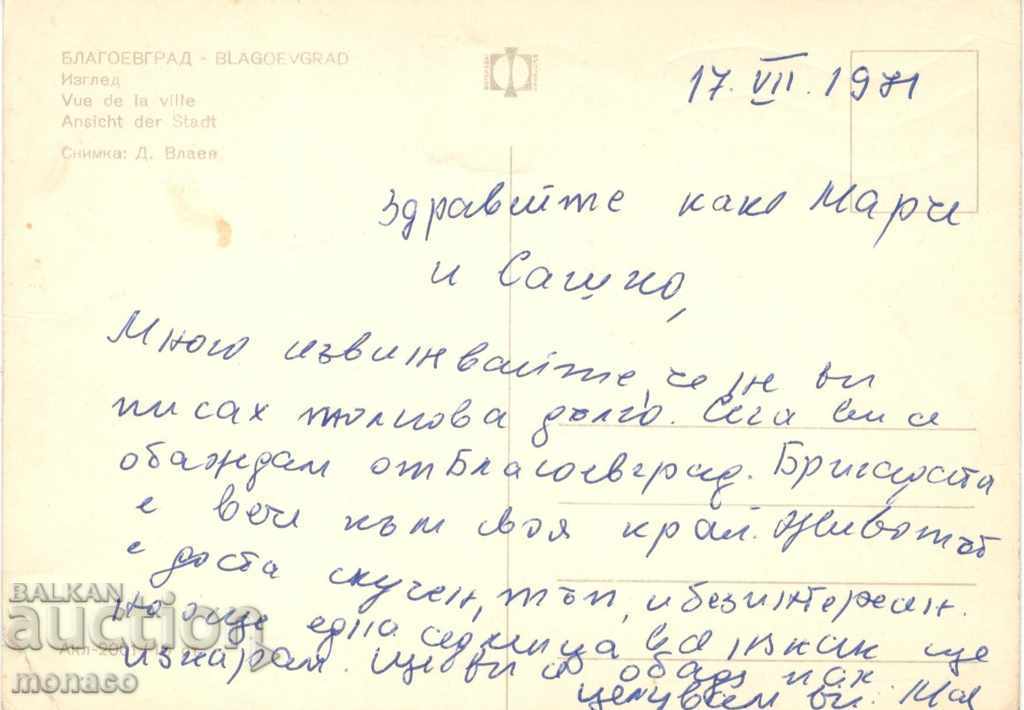 БЛАГОЕВГРАД - BLAGOEVGRAD
Изглед
Vue de la ville
Ansicht der Stadt
Снимка: Д. Влаев
17. VII. 1971
Здравейте како Марче
и Сашко,
Много извинявайте, че не ви
писах толкова дълго. Сега ви се
обаждам от Благоевград. Бригадата
е вече към своя край. Животът
е доста скучен, тъп и безинтересен.
Но още една седмица все някак ще
изкарам. Ще ви се обадя пак.
Целувам ви:
BALKAN
auction
monaco